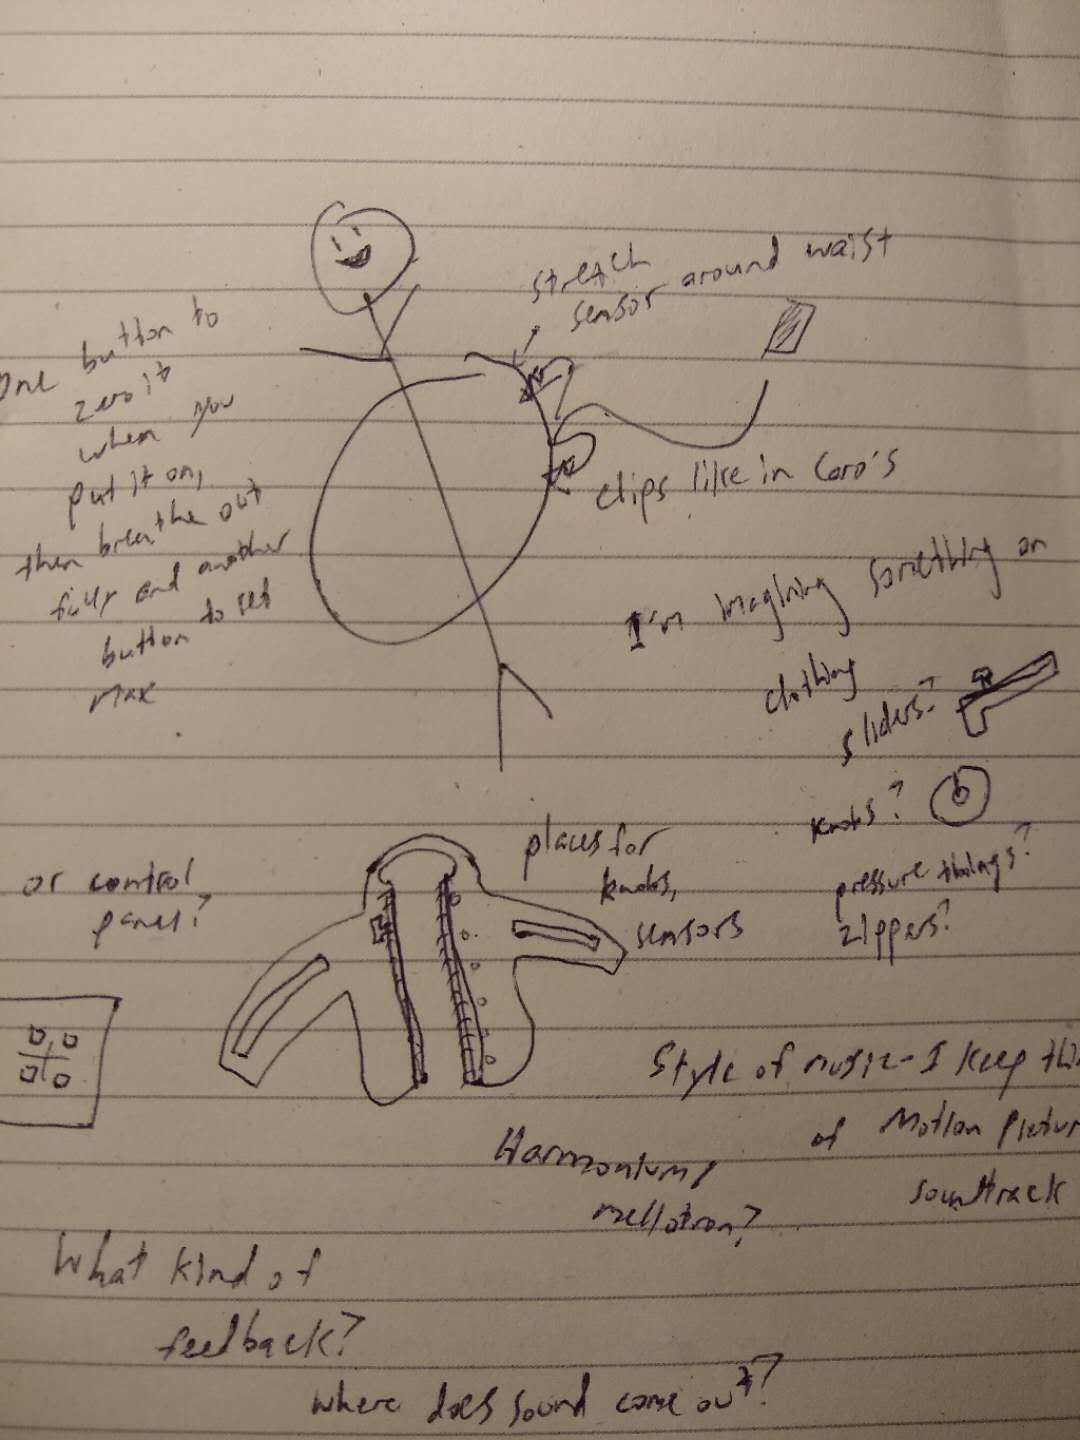 stretch
sensor around waist
One button to
zero it
when you
put it on,
then breathe out
fully and another
button to set
max
clips like in Caro's
I'm imagining something on
clothing
sliders?
knobs?
pressure things?
zippers?
places for
knobs,
sensors
or control
panel?
Style of music - I keep thi
of Motion Pictur
soundtrack
Harmonium,
mellotron?
What kind of
feedback?
where does sound come out?